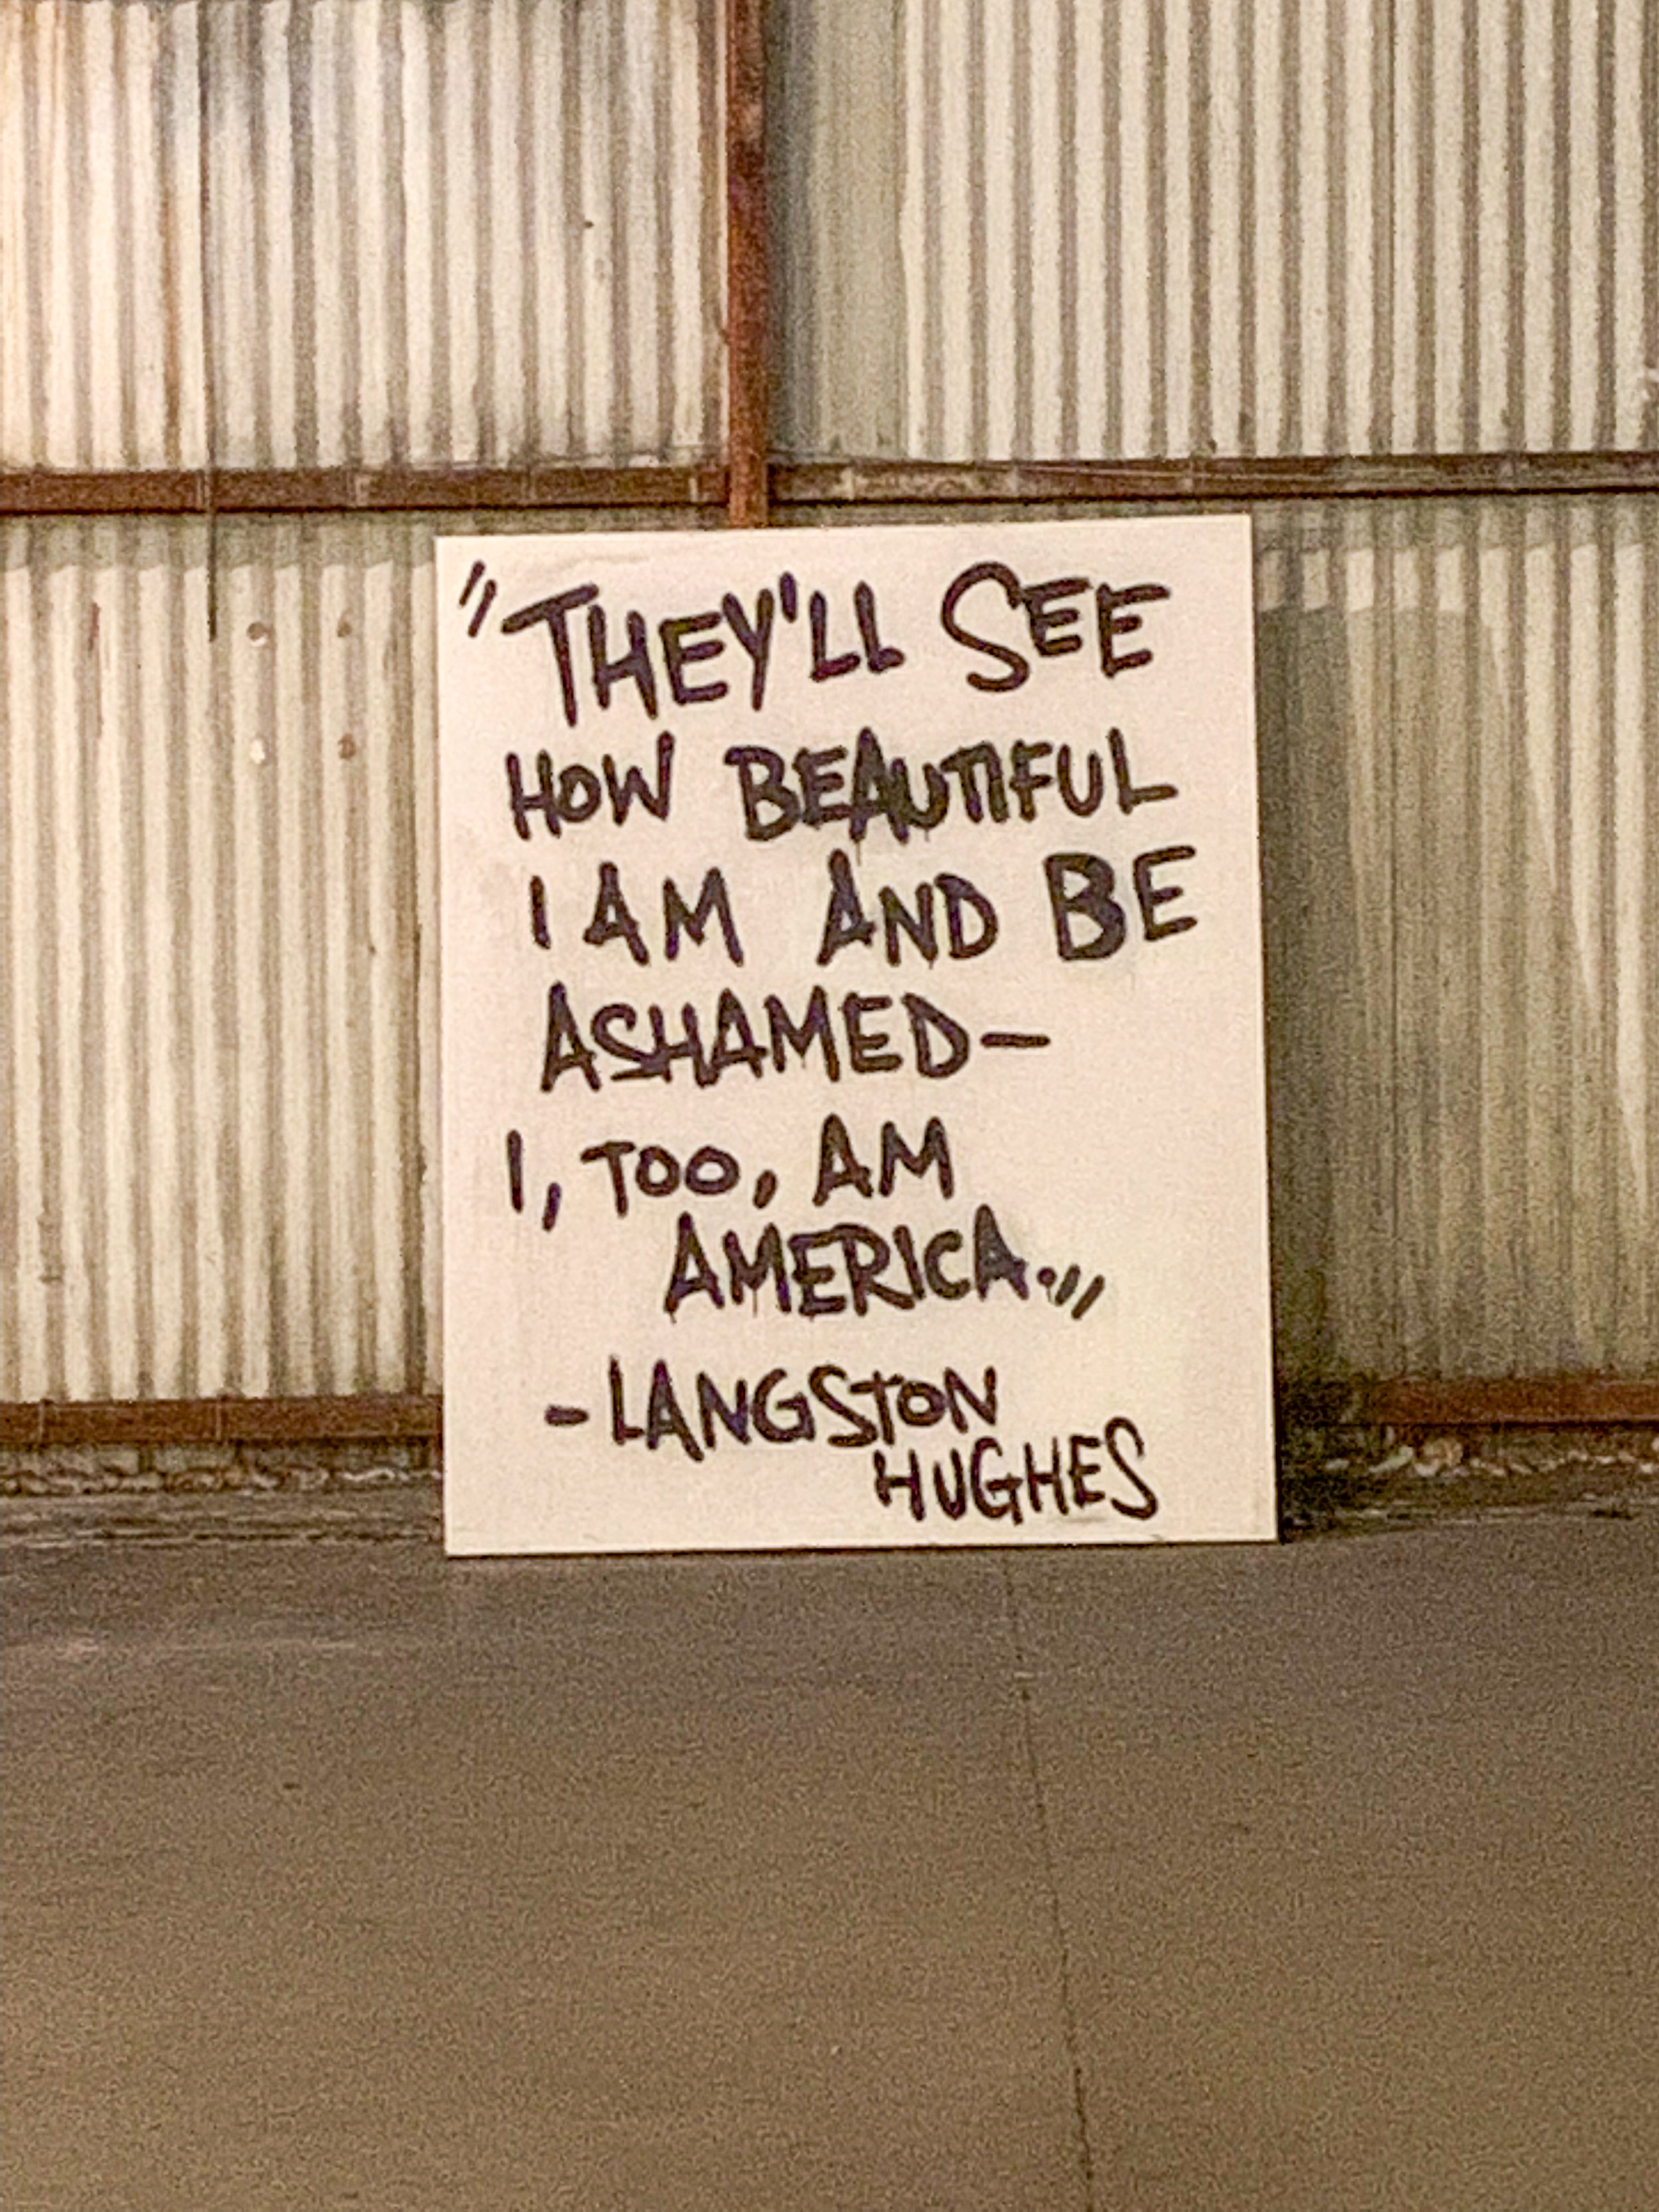 "THEY'LL SEE
HOW BEAUTIFUL
I AM AND BE
ASHAMED—
I, TOO, AM
AMERICA."
-LANGSTON
HUGHES